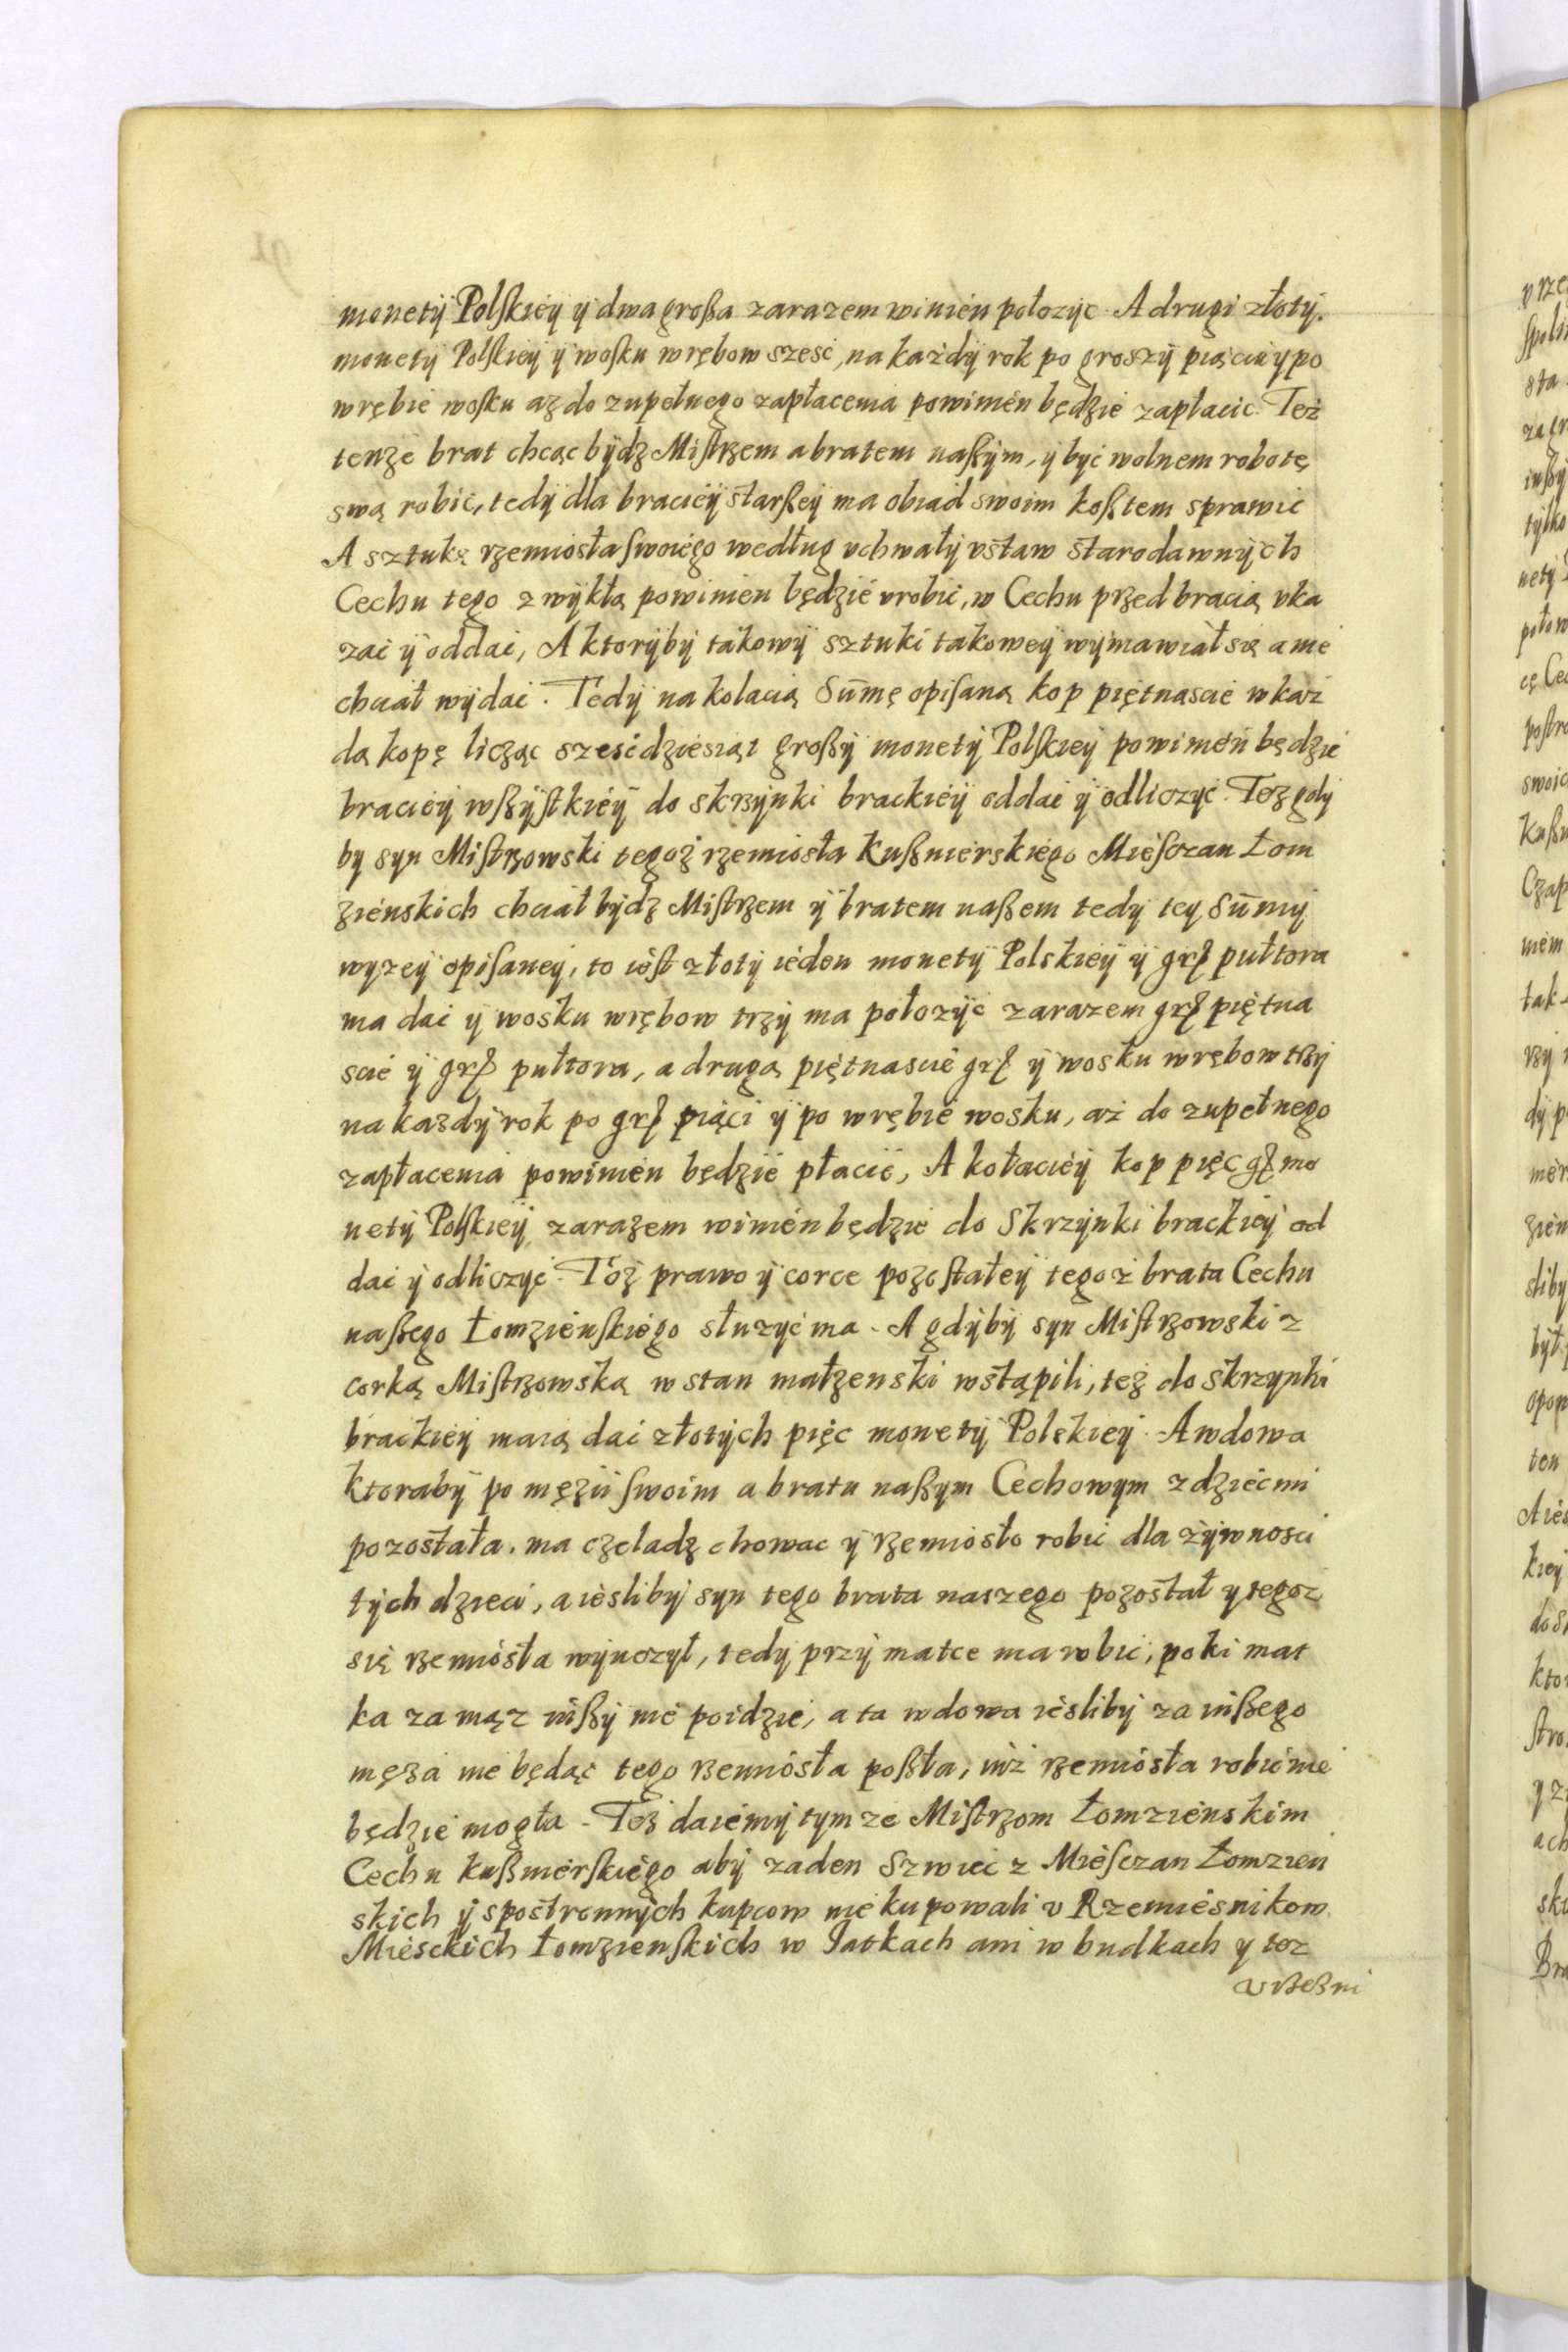 monetÿ Polſkiéÿ ÿ dwa großa zarazem winién połozÿc. A drugi złotÿ.
monetÿ Polſkieÿ ÿ woſku wrębow szesc, na każdÿ rok po groszÿ piąciu ÿ po
wrębie woſku aż do zupełnego zapłacenia powinién będzie zapłacic. Też
tenże brat chcąc bÿdz Miſtrzem a bratem naßÿm, ÿ byc wolnem robotę
swą robic, tedÿ dla braciéÿ starßeÿ ma obiad swoim koßtem sprawic
A sztukę rzemiosła ſwoiégo według vchwałÿ vstaw starodawnÿch
Cechu tego zwÿkłą powinien będzié vrobic, w Cechu przed bracią vka
zac ÿ oddac, A ktorÿbÿ takowÿ sztuki takoweÿ wÿmawiał się a nie
chciał wÿdac. Tedÿ na kolacią Sum̄ę opiſaną kop piętnascié w każ
dą kopę licząc szescdziésiąt großÿ monetÿ Polſkieÿ powinién będzié
braciéÿ wßÿſtkiéÿ do skrzÿnki brackiéÿ oddac ÿ odliczyc. Toż gdÿ
by syn Miſtrzowski tegoż rzemiosła kußnierskiégo Mieſczan Łom
zieńskich chciał bÿdz Miſtrzem ÿ bratem naßem tedÿ teÿ Sum̄ÿ
wyzeÿ opiſaneÿ, to iéſt złotÿ iéden monetÿ Polskieÿ ÿ grß pułtora
ma dac ÿ wosku wrębow trzÿ ma połozÿc zarazem grß piętna
scié ÿ grß pułtora, a drugą piętnascié grß ÿ wosku wrębow trzÿ
na kazdÿ rok po grß piąci ÿ po wrębié wosku, aż do zupełnego
zapłacenia powinién będzié płacic, A kołaciéÿ kop pięc gß mo
netÿ Polſkieÿ zarazem winién będzie do Skrzÿnki brackiéÿ od
dac ÿ odliczyc. Toż prawo ÿ corce pozoſtałeÿ tegoż brata Cechu
naßego Łomzieńſkiégo słuzyc ma. A gdÿbÿ syn Miſtrzowski z
corką Miſtrzowską w stan małzenski wstąpili, też do skrzynki
brackiéÿ maią dac złotÿch pięc monetÿ Polskieÿ. A wdowa
ktorabÿ po mężu ſwoim a bratu naßym Cechowym z dziécmi
pozostała, ma czeladz chowac ÿ rzemiosło robic dla żÿwnosci
tÿch dzieci, a iéslibÿ syn tego brata naszego pozostał y tegoz
się rzemiósła wÿuczył, tedÿ przÿ matce ma robic, poki mat
ka za mąz inßÿ nié poidzié, a ta wdowa iéslibÿ za inßego
męża nie będąc tego rzemiósła poßła, iuż rzemiósła robic nié
będzié mogła. Też daiémÿ tym ze Miſtrzom Łomzienskim
Cechu kußniérſkiégo abÿ zaden Szwiec z Miéſczan Łomzien
skich ÿ spostronnÿch kupcow nié kupowali v Rzemiésnikow
Mièsckich Łomzienſkich w Jatkach ani w budkach y toz